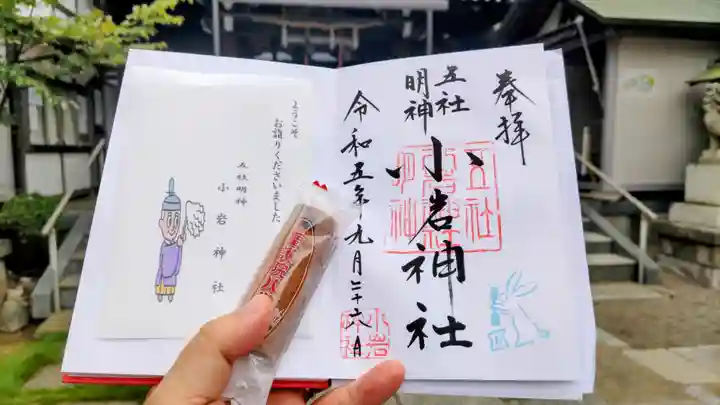 奉拝
五社
明神
小岩神社
令和五年九月二十六日
五社
小岩神社
明神
小岩
神社
ようこそ
お詣りくださいました
五社明神
小岩神社